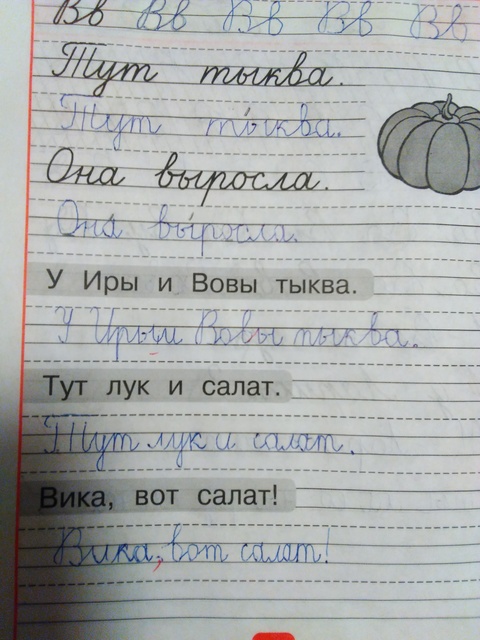 Вв Вв Вв Вв Вв
Тут тыква.
Тут ты́ква.
Она выросла.
Она́ вы́росла.
У Иры и Вовы тыква.
У Иры и Вовы тыква.
Тут лук и салат.
Тут лук и салат.
Вика, вот салат!
Вика, вот салат!